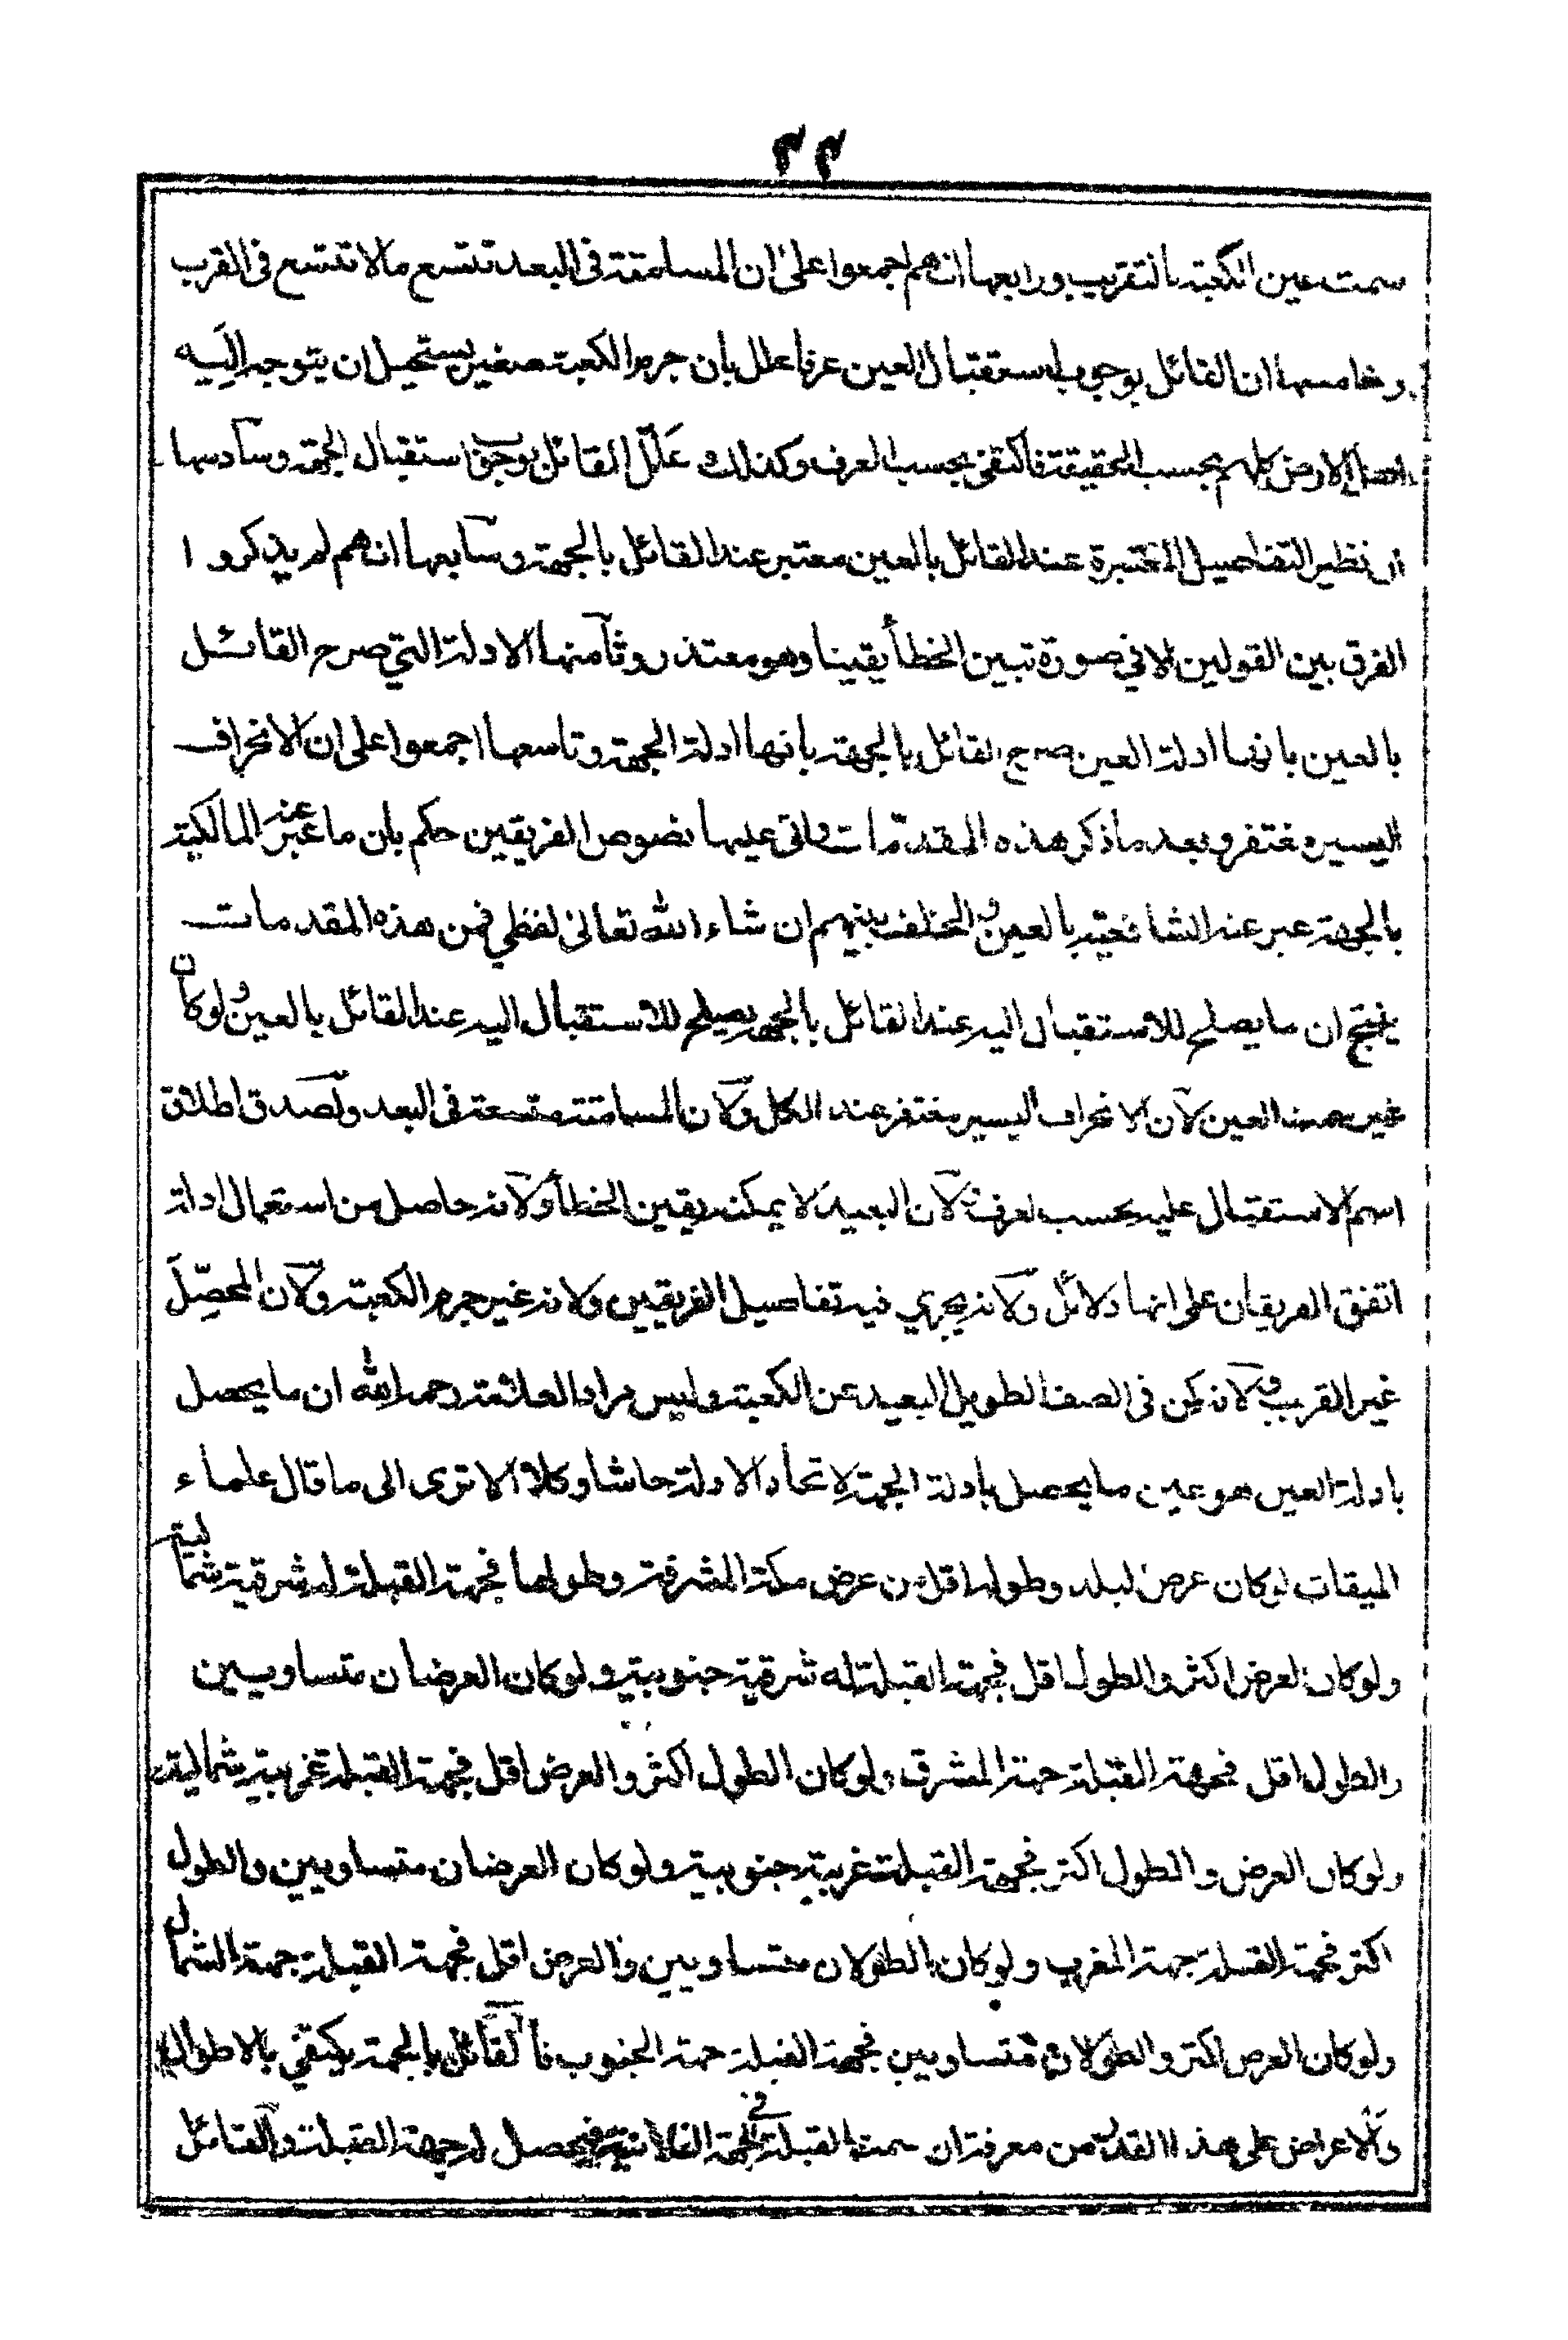 ٣٣
سمت عين الكعبة بالتقريب ورابعها انهم اجمعوا على ان المسامتة في البعد تتسع ما لا تتسع في القرب
وخامسها ان القائل بوجوب استقبال العين عرفا علل بان جرم الكعبة صغير يستحيل ان يتوجه اليه
اهل الارض كلهم بحسب الحقيقة فاكتفى بحسب العرف وكذلك علّل القائل بوجوب استقبال الجهة وسادسها
ان نظير التفاصيل المعتبرة عند القائل بالعين معتبر عند القائل بالجهة وسابعها انهم لم يذكروا
الفرق بين القولين الا في صورة تبين الخطأ يقينا وهو معتذر وثامنها الادلة التي صرح القائل
بالعين بانها ادلة العين صرح القائل بالجهة بانها ادلة الجهة وتاسعها اجمعوا على ان الانحراف
اليسير مغتفر وبعد ما ذكر هذه المقدمات واتى عليها نصوص الفريقين حكم بان ما عبر عنه المالكية
بالجهة عبر عنه الشافعية بالعين والخلف بينهم ان شاء الله تعالى لفظي فمن هذه المقدمات
ينتج ان ما يصلح للاستقبال اليه عند القائل بالجهة يصلح للاستقبال اليه عند القائل بالعين ولو كان
غير سمت العين لان الانحراف اليسير مغتفر عند الكل ولان المسامتة متسعة في البعد ولصدق اطلاق
اسم الاستقبال عليه بحسب العرف ولان البعيد لا يمكنه يقين الخطأ ولانه حاصل من استعمال ادلة
اتفق الفريقان على انها دلائل ولانه يجري فيه تفاصيل الفريقين ولانه غير جرم الكعبة ولان المحصّل
غير القريب ولانه كمن في الصف الطويل البعيد عن الكعبة وليس مراد العلامة رحمه الله ان ما يحصل
بادلة العين هو عين ما يحصل بادلة الجهة لاتحاد الادلة حاشا وكلا الا ترى الى ما قال علماء
الميقات لو كان عرض البلد وطوله اقل من عرض مكة المشرفة وطولها فجهة القبلة له شرقية شمالية
ولو كان العرض اكثر والطول اقل فجهة القبلة له شرقية جنوبية ولو كان العرضان متساويين
والطول اقل فجهة القبلة جهة المشرق ولو كان الطول اكثر والعرض اقل فجهة القبلة غربية شمالية
ولو كان العرض والطول اكثر فجهة القبلة غربية جنوبية ولو كان العرضان متساويين والطول
اكثر فجهة القبلة جهة المغرب ولو كان الطولان متساويين والعرض اقل فجهة القبلة جهة الشمال
ولو كان العرض اكثر والطولان متساويين فجهة القبلة جهة الجنوب فالقائل بالجهة يكتفي بالاطوال
والاعراض على هذا القدر من معرفة ان سمت القبلة في الجهة الفلانية فيحصل له جهة القبلة والقائل